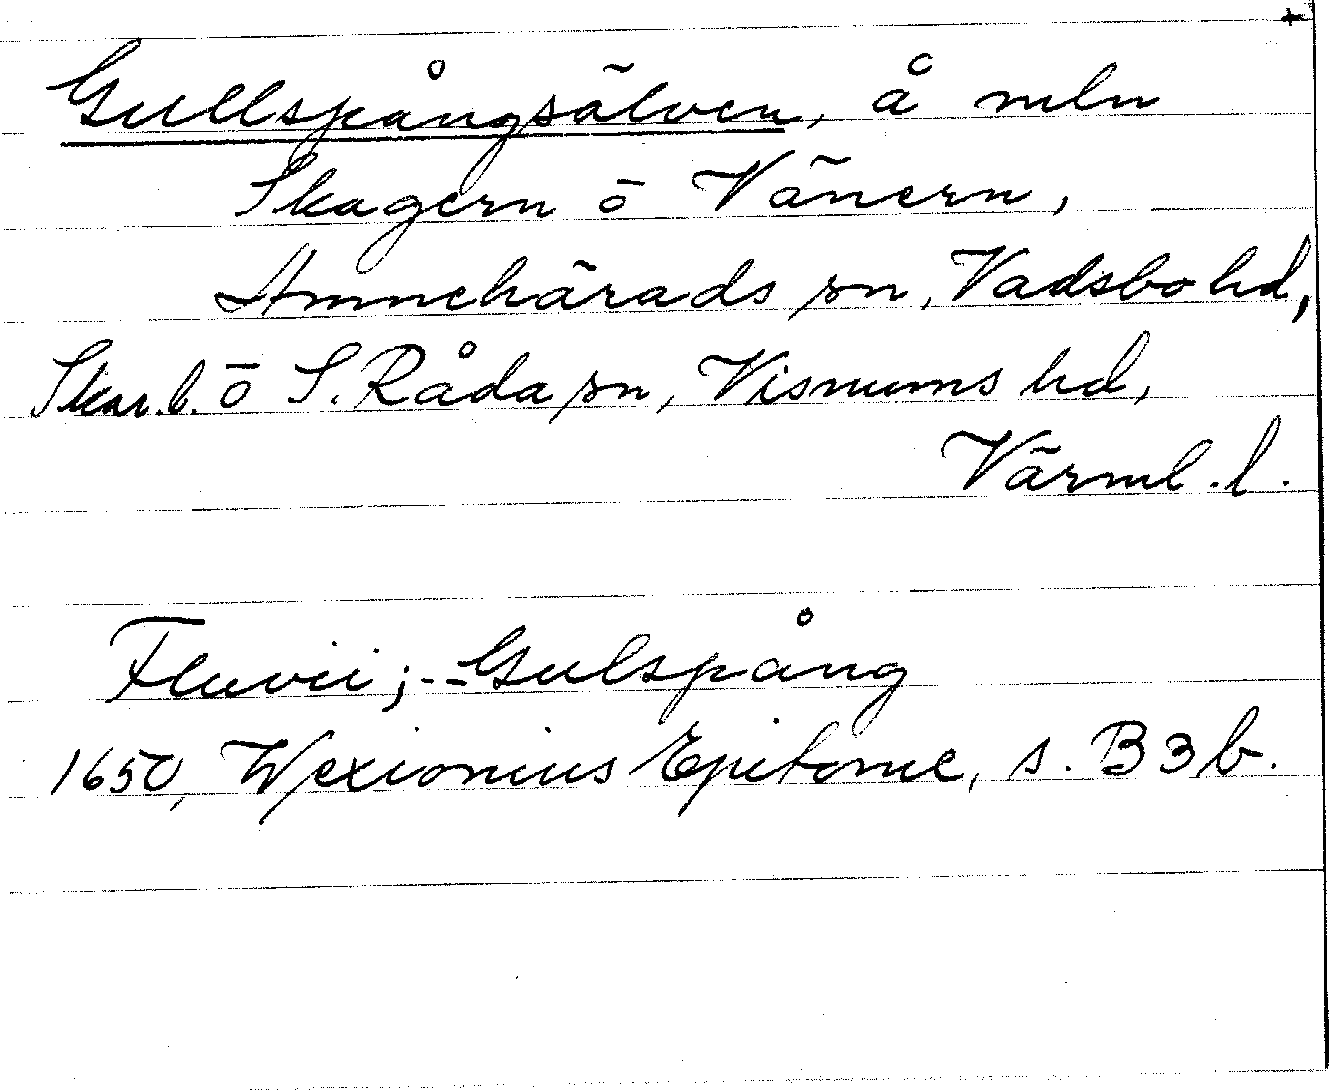 Gullspångsälven, å mln
Skagern ō Vänern,
Amnehärads sn, Vadsbo hd,
Skar.l. ō S. Råda sn, Visnums hd,
Värml. l.
Fluvii; -- Gulspång
1650, Wexionius Epitome, s. B3b.